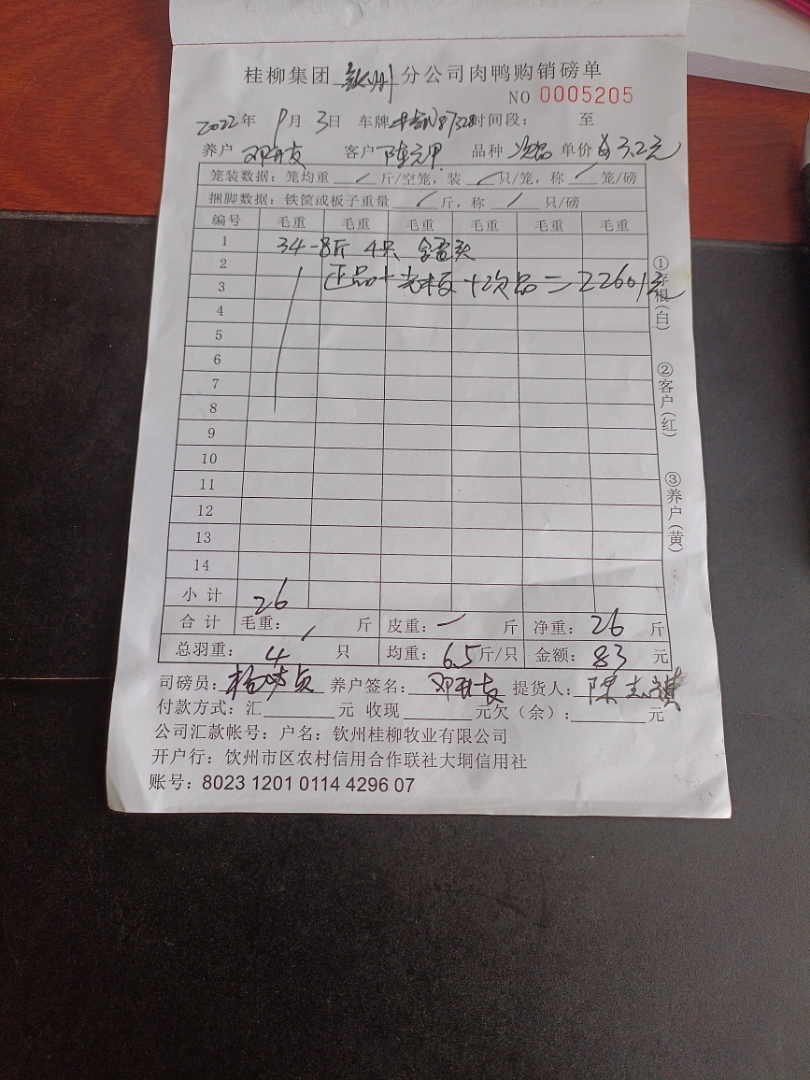 桂柳集团 钦州 分公司肉鸭购销磅单
NO 0005205
2022年 9月 3日 车牌 时间段： 至
养户 邓开友 客户 陈元甲 品种 次品 单价 每3.2元
笼装数据：笼均重 / 斤/空笼，装 / 只/笼，称 / 笼/磅
捆脚数据：铁筐或板子重量 / 斤，称 / 只/磅
编号 毛重 毛重 毛重 毛重 毛重 毛重
1 34-8斤 4只
2
3 正品+光板+次品=22601元
4
5
6
7
8
9
10
11
12
13
14
小计 26
合计 毛重： / 斤 皮重： / 斤 净重：26 斤
总羽重： 4 只 均重：6.5斤/只 金额：83 元
司磅员：杨 贞 养户签名：邓开友 提货人：陈志祺
付款方式：汇 元 收现 元欠（余）： 元
公司汇款帐号：户名：钦州桂柳牧业有限公司
开户行：钦州市区农村信用合作联社大垌信用社
账号：8023 1201 0114 4296 07
①存根（白）
②客户（红）
③养户（黄）